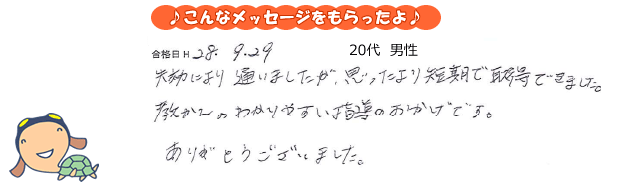 ♪こんなメッセージをもらったよ♪
合格日 H 28. 9.29 20代 男性
失効により通いましたが、思ったより短期で取得できました。
教官のわかりやすい指導のおかげです。
ありがとうございました。